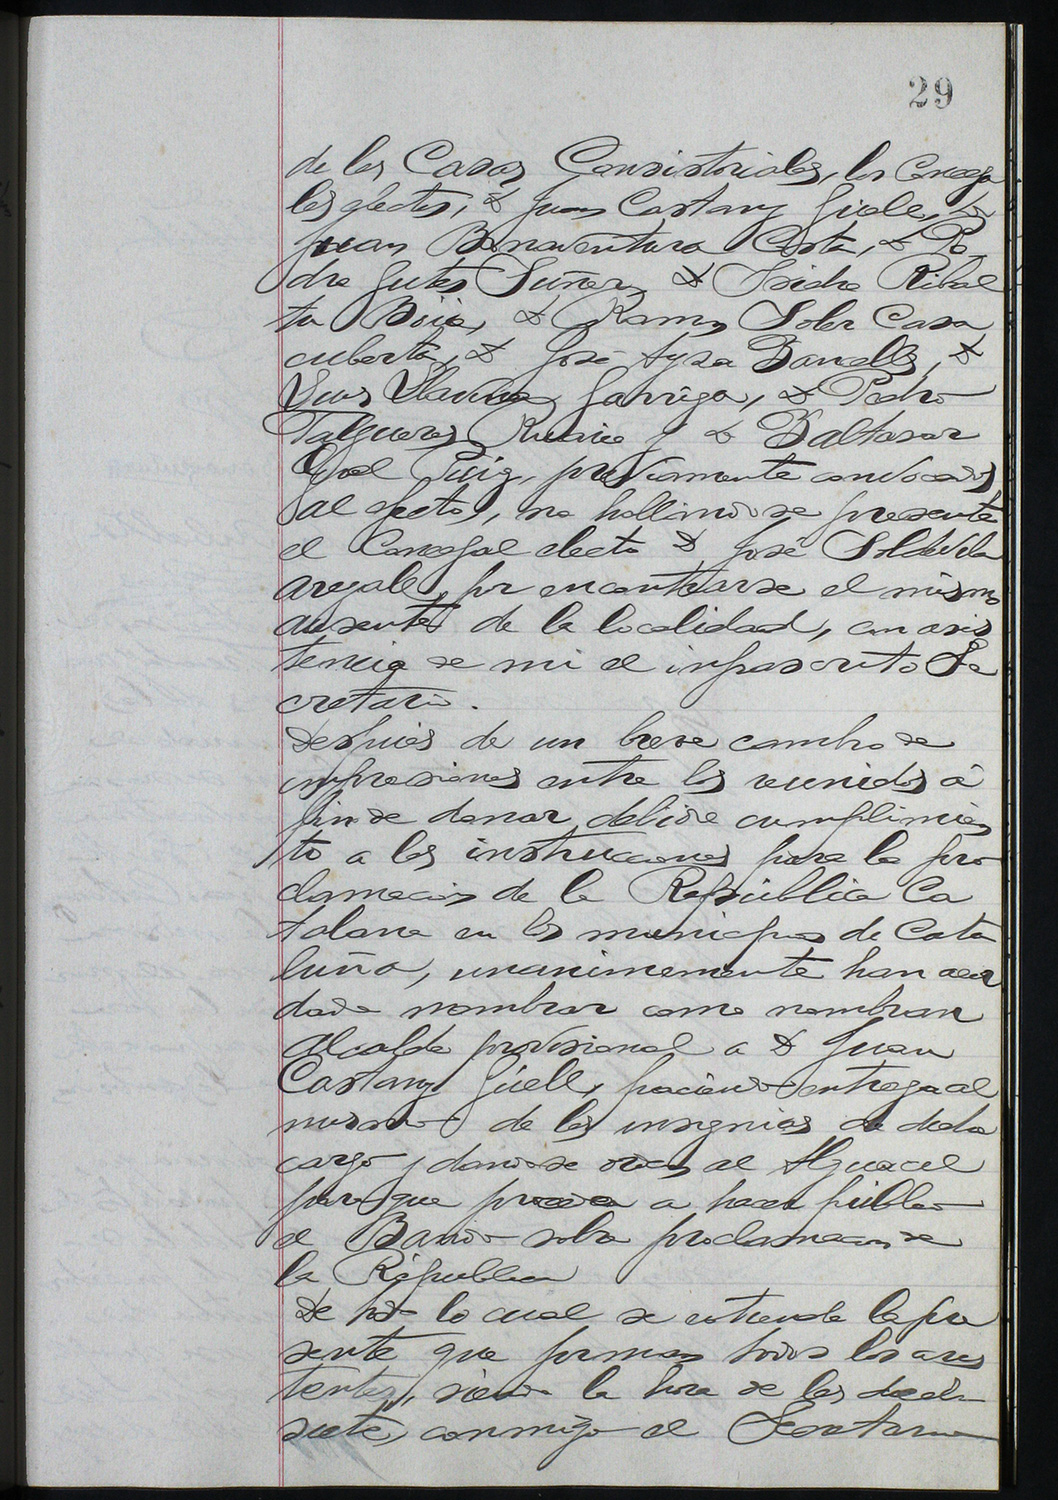 29
de las Casas Consistoriales, los Conceja
les electos, D Juan Castany Güell, D
Juan Bonaventura Costa, D Pe
dro Suñer D Isidro Ribal
ta Boix, D Ramon Soler Casa
cuberta, D José Aysa Danells, D
Luis Garriga, D Pedro
Falgueras y D Baltasar
Puig, previamente convocados
al efecto, no hallandose presente
el Concejal electo D José Soldevila
por encontrarse el mismo
ausente de la localidad, con asis
tencia de mi el infrascrito Se
cretario.
Despues de un breve cambio de
impresiones entre los reunidos á
fin de donar debido cumplimien
to a las instrucciones para la pro
clamacion de la República Ca
talana en los municipios de Cata
luña, unanimemente han acor
dado nombrar como nombran
Alcalde provisional a D Juan
Castany Güell, haciendo entrega al
mismo de las insignias de dicho
cargo y dandose orden al Alguacil
para que proceda a hacer público
el Bando sobre proclamacion de
la República
De todo lo cual se extiende la pre
sente que forman todos los asis
tentes, siendo la hora de las dieci
siete, conmigo el Secretario